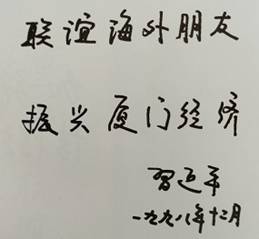 联谊海外朋友
振兴厦门经济
习近平
一九九八年十二月